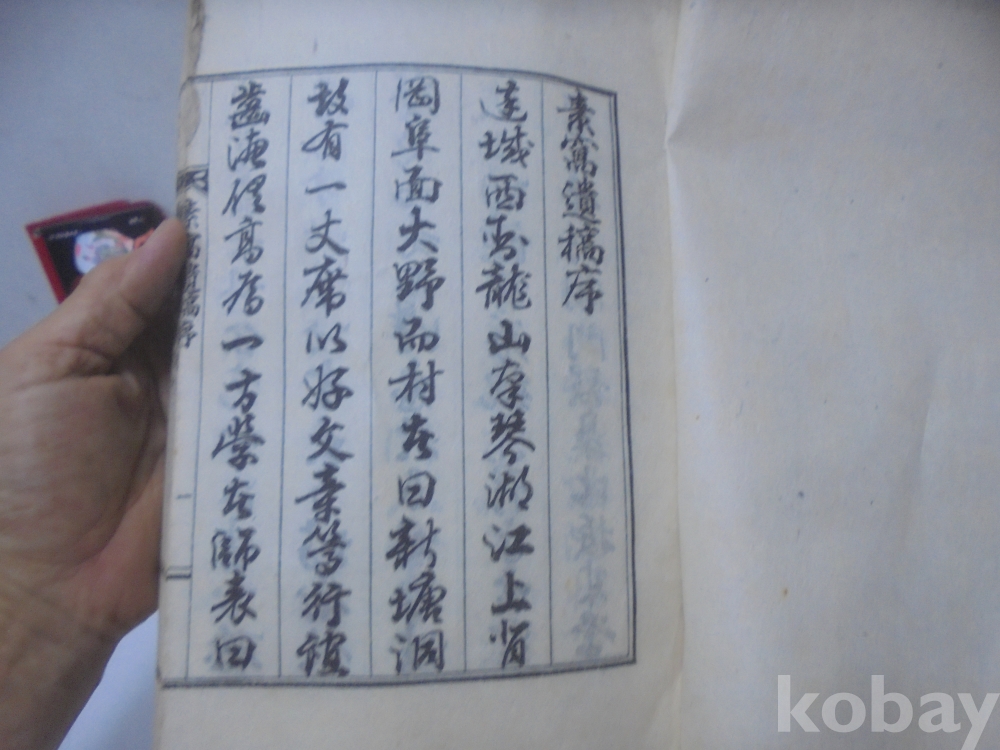 素窩遺稿序
達城西龍山琴湖江上背
岡阜面大野而村者曰新塘洞
故有一丈席以好文章篤行誼
齒德俱高爲一方學者師表曰
素窩遺稿序
一
kobay